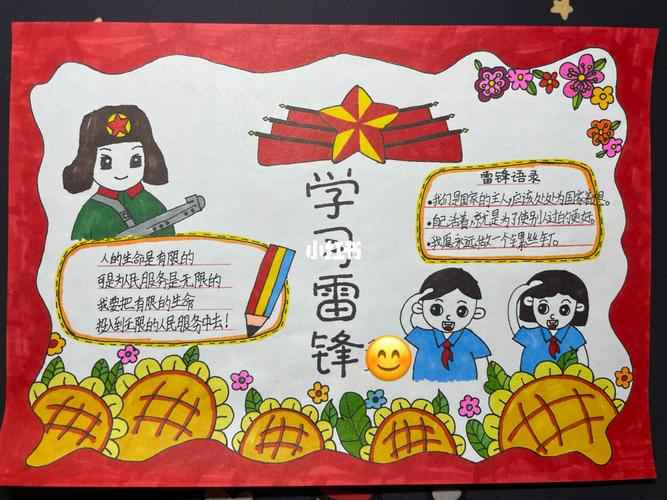 学习雷锋
小红书
人的生命是有限的
可是为人民服务是无限的
我要把有限的生命
投入到无限的人民服务中去!
雷锋语录
•我们是国家的主人,应该处处为国家着想。
•自己活着,就是为了使别人过的更好。
•我愿永远做一个螺丝钉。